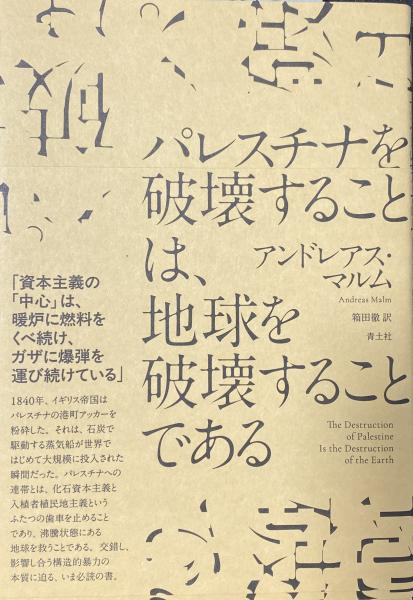 パレスチナを
破壊すること
は、
地球を
破壊すること
である
アンドレアス・
マルム
Andreas Malm
箱田徹 訳
青土社
The Destruction
of Palestine
Is the Destruction
of the Earth
「資本主義の
「中心」は、
暖炉に燃料を
くべ続け、
ガザに爆弾を
運び続けている」
1840年、イギリス帝国は
パレスチナの港町アッカーを
粉砕した。それは、石炭で
駆動する蒸気船が世界で
はじめて大規模に投入された
瞬間だった。パレスチナへの
連帯とは、化石資本主義と
入植者植民地主義という
ふたつの歯車を止めること
であり、沸騰状態にある
地球を救うことである。交錯し、
影響し合う構造的暴力の
本質に迫る、いま必読の書。